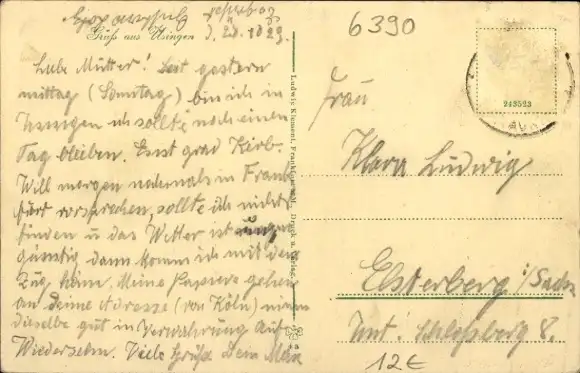 6390
Gruß aus Usingen
Liebe Mutter! Seit gestern
mittag (Sonntag) bin ich in
Usingen ich sollte noch einen
Tag bleiben. Es ist grad Kerb.
Will morgen nochmals in Frank
furt vorsprechen, sollte ich nichts
finden u das Wetter ist ungün
günstig dann komm ich mit dem
Zug heim. Meine Papiere gehen
an deine Adresse (von Köln) nimm
dieselbe gut in Verwahrung Auf
Wiedersehn. Viele Grüße Dein Max
Ludwig Klement, Frankfurt a. M., Druck u. Verlag.
243523
Frau
Klara Ludwig
Elsterberg i/Sachs
Unt. Schloßberg 8.
12€